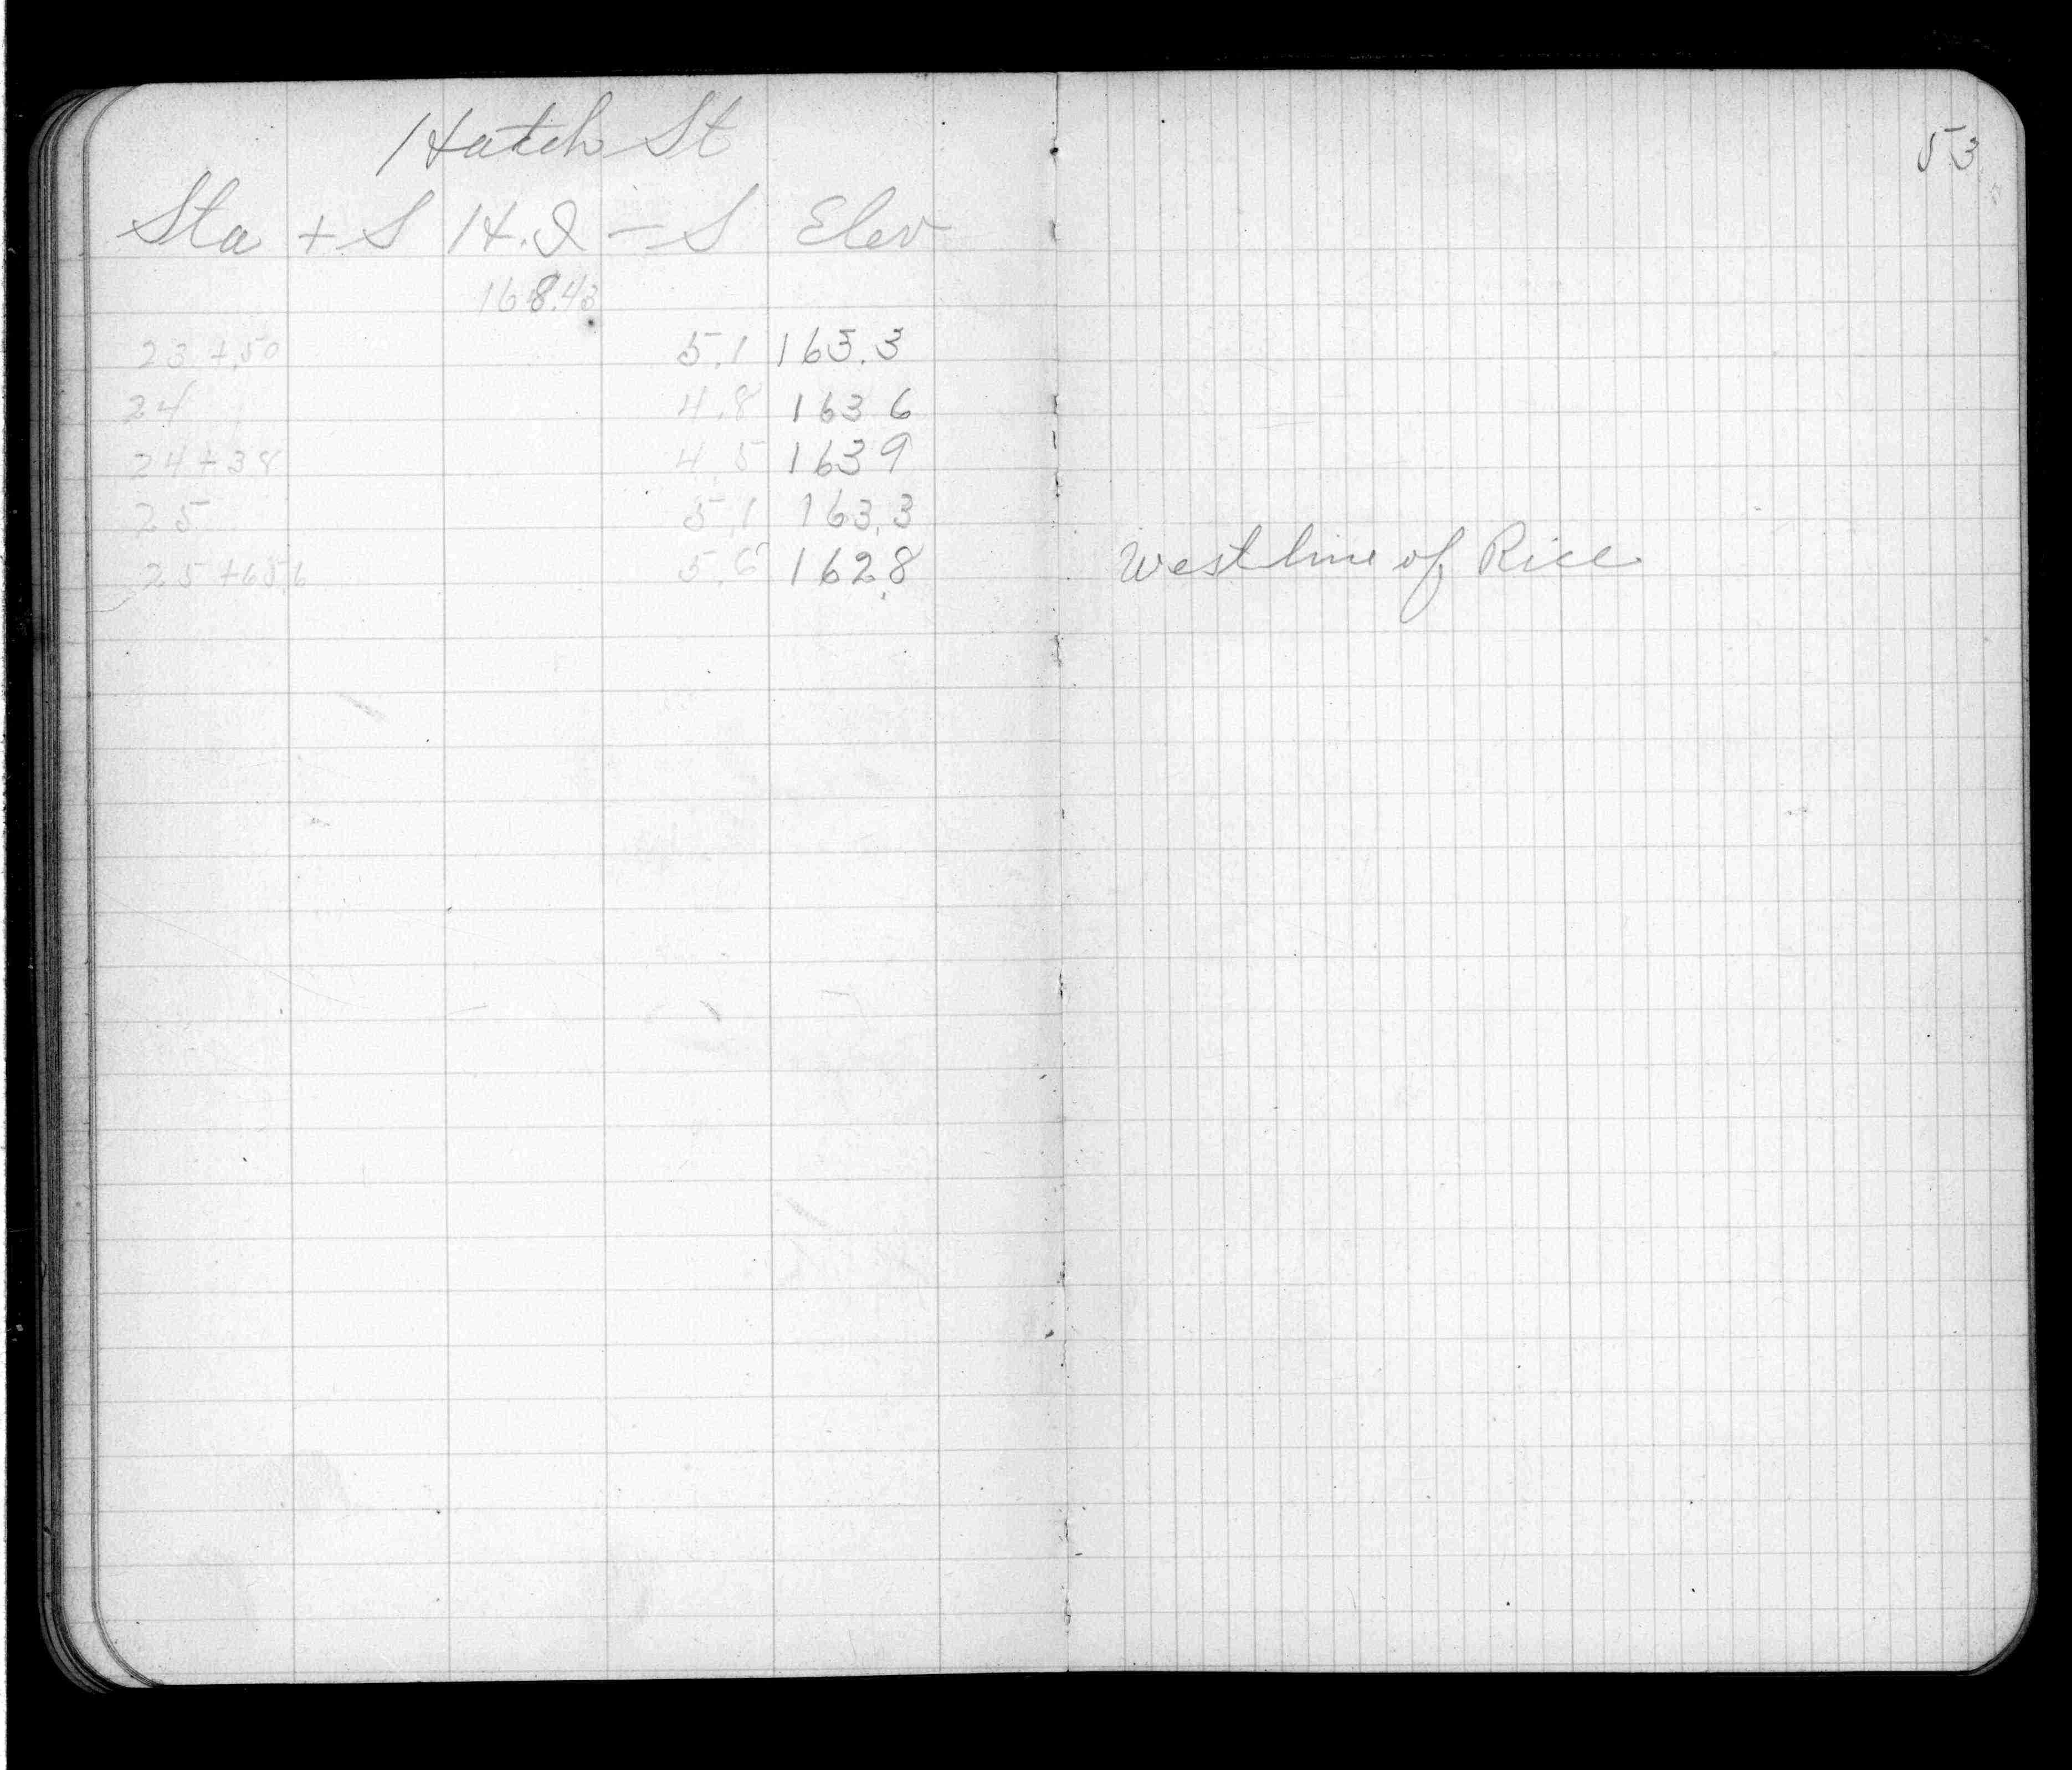 Hatch St
53
Sta + S H.I - S Elev
168.43
23 + 50 5.1 163.3
24 4.8 163 6
24 + 38 4.5 163 9
25 5.1 163.3
25 + 65.6 5.6 162.8 West line of Rice